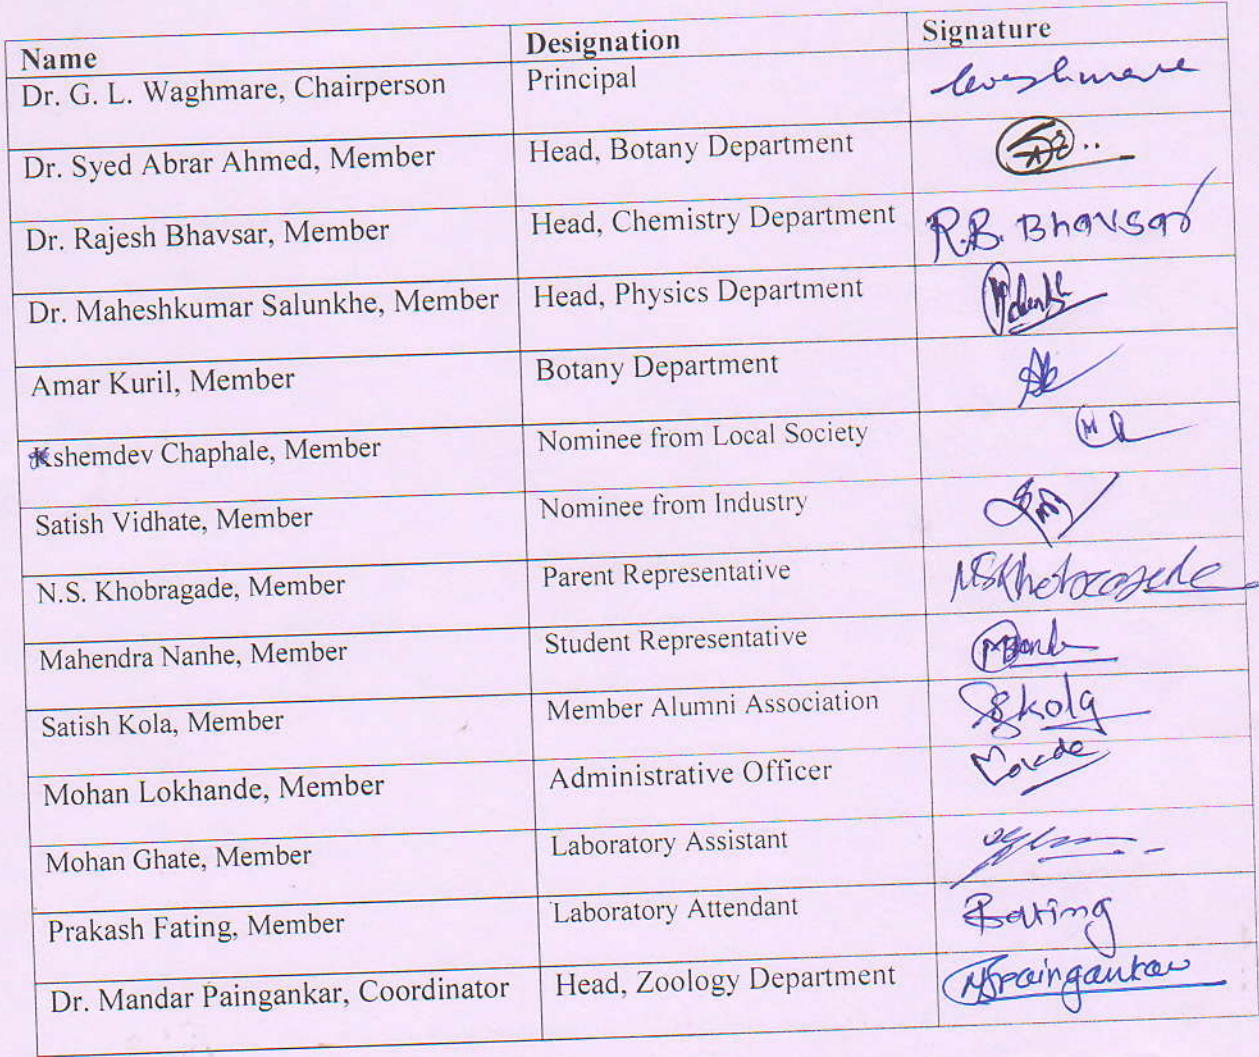 Name Designation Signature
Dr. G. L. Waghmare, Chairperson Principal Waghmare
Dr. Syed Abrar Ahmed, Member Head, Botany Department
Dr. Rajesh Bhavsar, Member Head, Chemistry Department R.B. Bhavsar
Dr. Maheshkumar Salunkhe, Member Head, Physics Department
Amar Kuril, Member Botany Department
Kshemdev Chaphale, Member Nominee from Local Society
Satish Vidhate, Member Nominee from Industry
N.S. Khobragade, Member Parent Representative NSKhobragade
Mahendra Nanhe, Member Student Representative
Satish Kola, Member Member Alumni Association Skola
Mohan Lokhande, Member Administrative Officer
Mohan Ghate, Member Laboratory Assistant
Prakash Fating, Member Laboratory Attendant Fating
Dr. Mandar Paingankar, Coordinator Head, Zoology Department MSPaingankar